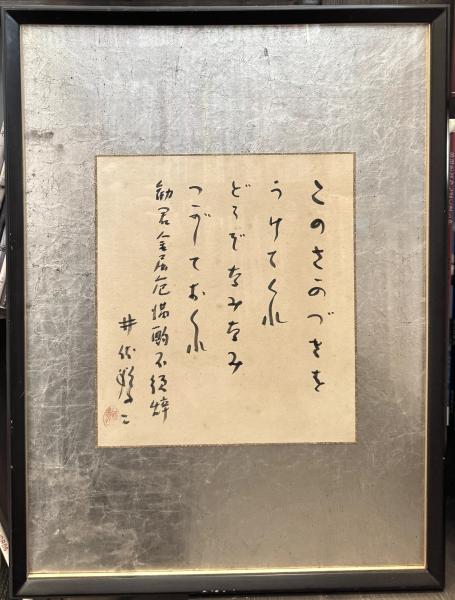 このさかづきを
うけてくれ
どうぞなみなみ
つがしておくれ
勧君金屈卮満酌不須辞
井伏鱒二